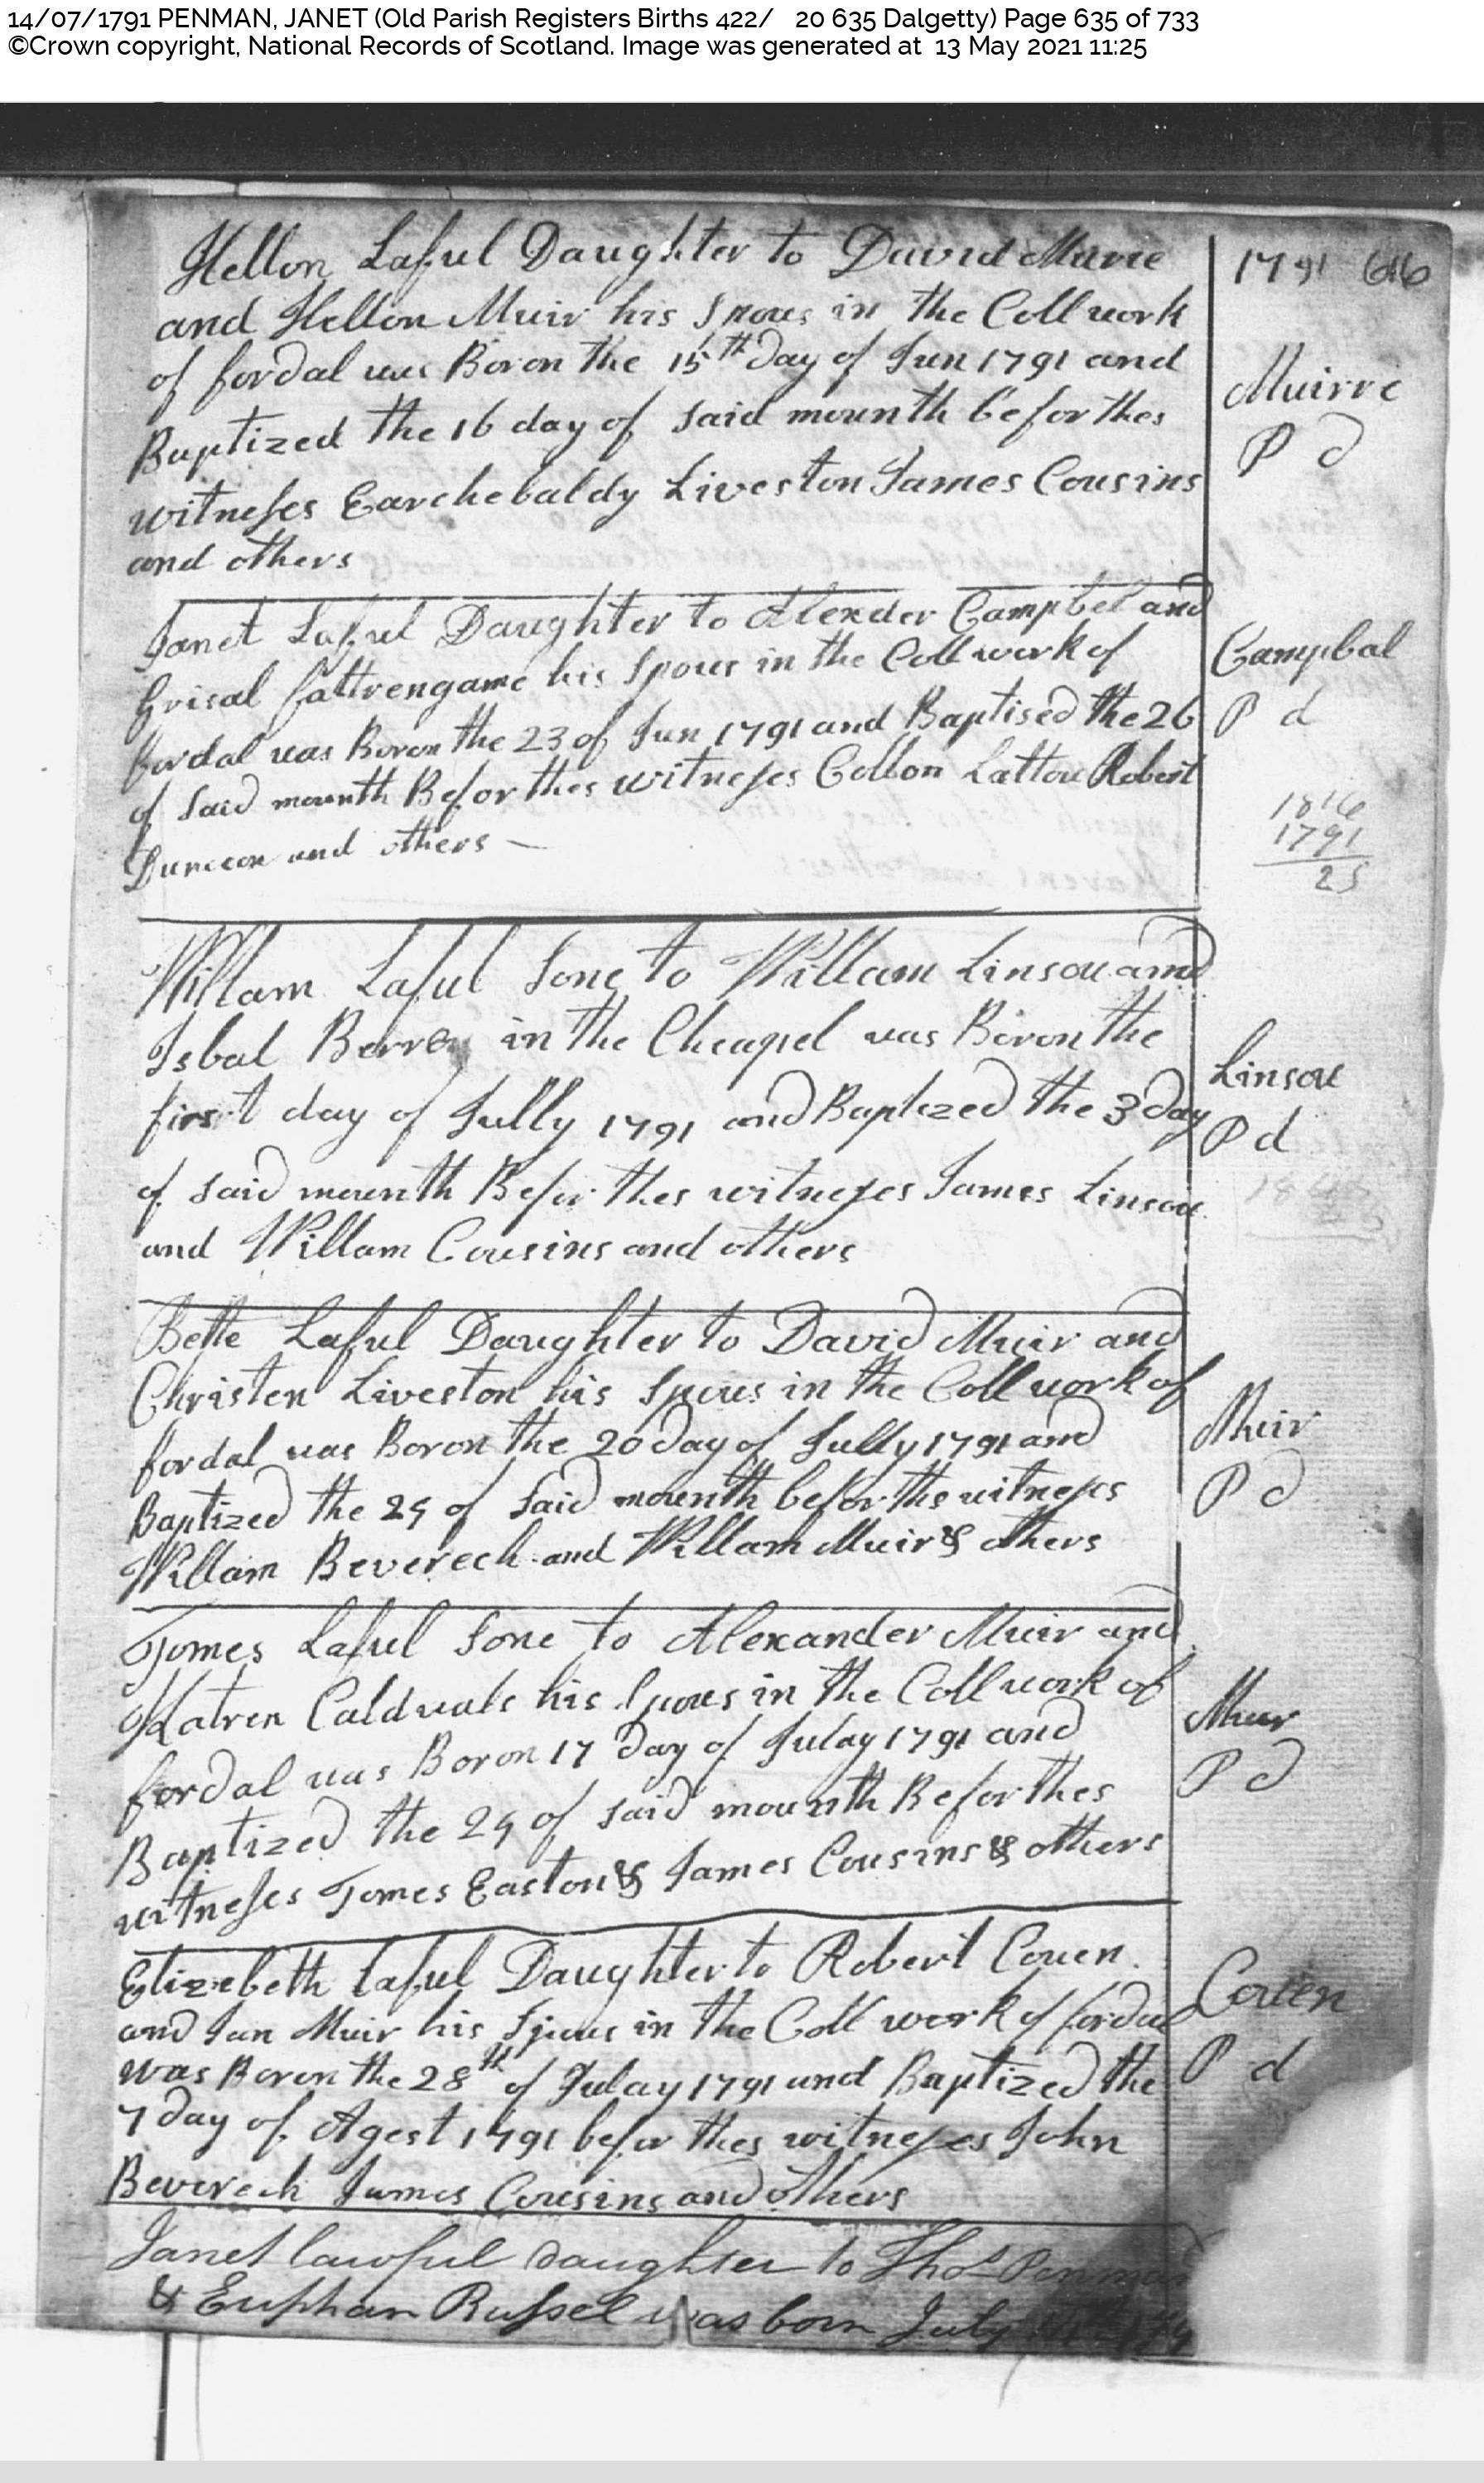 14/07/1791 PENMAN, JANET (Old Parish Registers Births 422/ 20 635 Dalgetty) Page 635 of 733
©Crown copyright, National Records of Scotland. Image was generated at 13 May 2021 11:25
1791 616
Hellon Laful Daughter to David Murie
and Hellon Muir his Spous in the Collwork
of fordal was Boron the 15th day of Jun 1791 and
Baptized the 16 day of Said mounth befor thes
witneses Earchebaldy Liveston James Cousins
and others
Muirre
P d
Janet Laful Daughter to Alexder Campbel and
Grisal his Spous in the Collwork of
fordal was Boron the 23 of Jun 1791 and Baptised the 26
of Said mounth Befor thes witneses Collon Lattou Robert
Duncon and others —
Campbal
P d
1816
1791
25
Willam Laful Sone to Willam Linsou and
Isbal Berrey in the Cheapel was Boron the
first day of Jully 1791 and Baptized the 3 day
of said mounth Befor thes witneses James Linsou
and Willam Cousins and others
Linsou
P d
Bette Laful Daughter to David Muir and
Christen Liveston his Spous in the Collwork of
fordal was Boron the 20 day of Jully 1791 and
Baptized the 24 of Said mounth befor the witneses
Willam Beverech and Willam Muir & others
Muir
P d
Tomes Laful Sone to Alexander Muir and
Katren Calduals his Spous in the Collwork of
fordal uas Boron 17 day of Julay 1791 and
Baptized the 24 of said mounth Befor thes
witneses Tomes Easton & James Cousins & others
Muir
P d
Elizebeth Laful Daughter to Robert Couen
and Jan Muir his Spous in the Coll work of fordal
was Boron the 28th of Julay 1791 and Baptized the
7 day of Agest 1791 befor thes witneses John
Beverech James Cousins and others
Couen
P d
Janet lawful daughter to Thos Penman
& Euphan Russel was born July 179